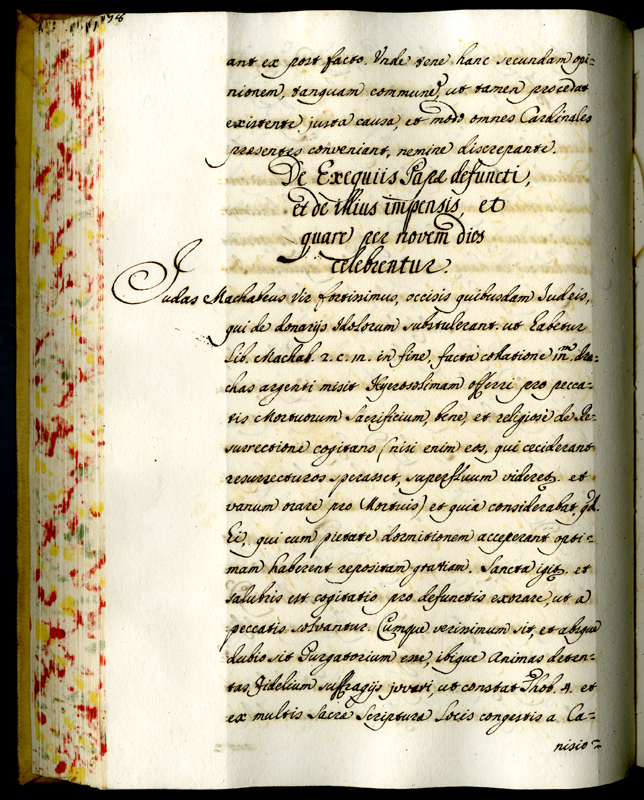 ant ex post facto. Unde tene hanc secundam opi=
nionem, tanquam communē, ut tamen procedat
existente justa causa, et modo omnes Cardinales
presentes conveniant, nemine discrepante.
De Exequiis Papæ defuncti,
et de illius impensis, et
quare per novem dies
celebrentur.
Iudas Machabeus Vir fortissimus, occisis quibusdam Iudeis,
qui de donarijs Idolorum substulerant. ut habetur
Lib. Machab. 2. c. 12. in fine, facta collatione 12m. Dra=
chas argenti misit Hyerosolimam offerri pro pecca=
tis Mortuorum Sacrificium, bene, et religiose de Re=
surrectione cogitans (nisi enim eos, qui ceciderant
resurrecturos speasset, superfluum videretr. et
vanum orare pro Mortuis) et quia considerabat qd.
hi, qui cum pietate dormitionem acceperant opti=
mam haberent repositam gratiam. Sancta igitr. et
salubris est cogitatio pro defunctis exorare, ut a
peccatis solvantur. Cumque verissimum sit, et absque
dubio sit Purgatorium esse, ibique Animas deten=
tas, Fidelium suffragijs juvari, ut constat Thob. 4. et
ex multis Sacræ Scripturæ Locis congestis a Ca=
nisio